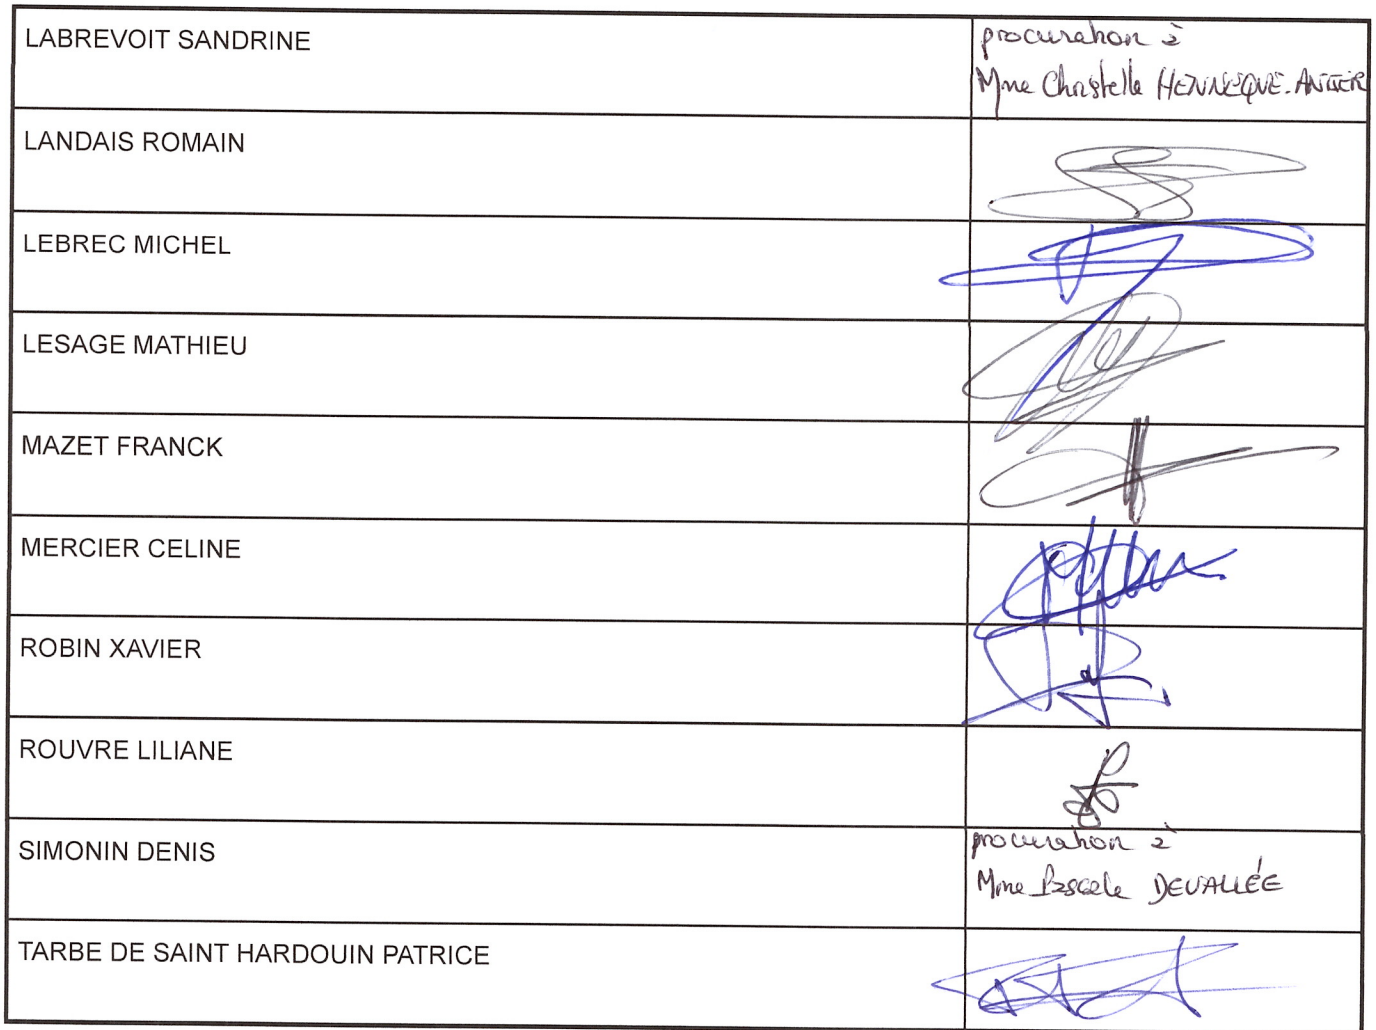 LABREVOIT SANDRINE
procuration à
Mme Christelle HENNEQUE-ANTIER
LANDAIS ROMAIN
LEBREC MICHEL
LESAGE MATHIEU
MAZET FRANCK
MERCIER CELINE
ROBIN XAVIER
ROUVRE LILIANE
SIMONIN DENIS
procuration à
Mme Pascale DEVALLÉE
TARBE DE SAINT HARDOUIN PATRICE